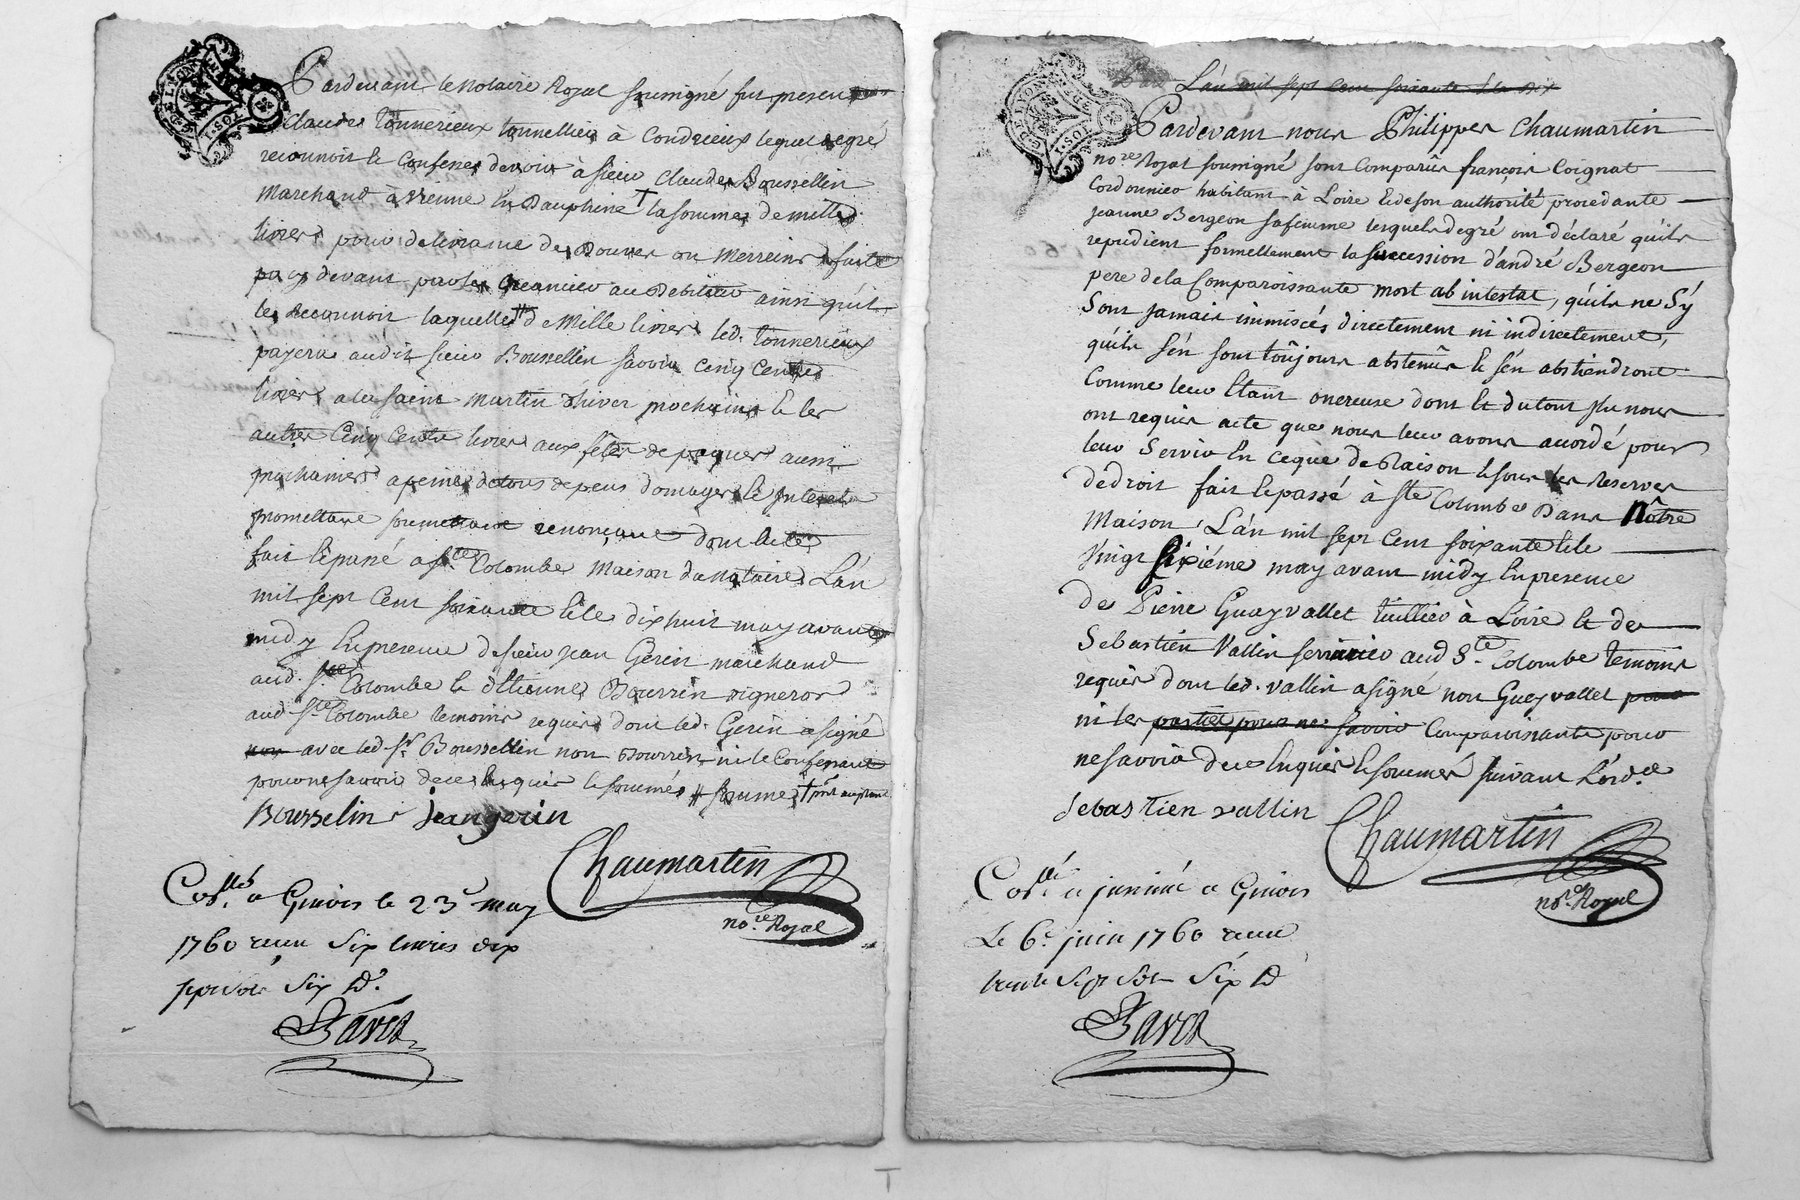 Pardevant le notaire Royal soussigné fut present
Claude Tonnerieux tonnellier à Condrieux lequel degré
reconnoit & confesse devoir à sieur Claude Bousselin
Marchand à Vienne en Dauphiné † la somme de mille
livres pour delivrance de Douves ou Merreins faite
cy devant par le creancier au Debiteur ainsi qu'il
le Reconnoit laquelle # de Mille livres led. Tonnerieux
payera audit sieur Bousselin savoir cinq cents
livres a la saint Martin d'hiver prochain & les
autres Cinq Cents livres aux fêtes de paques aussi
prochaines a peine de tous depens domages & Interets
promettant soumettant renonçant dont Acte
fait & passé a Ste. Colombe Maison du notaire L'an
mil sept Cent soixante & le dix huit may avant
midy En presence de sieur jean Gerin marchand
aud. Ste Colombe & d'Etienne Bourrin vigneron
aud Ste. Colombe temoins requis dont led. Gerin a signé
avec led Sr. Bousselin non Bourrin ni le Confessant
pour ne savoir de ce enquis & sommés # somme †
Bousselin jean gerin
Chaumartin
nore. Royal
Collé. a Givors le 23e may
1760 reçu six livres dix
sept sols six d.
Favre
L'an mil sept cent soixante & le
Pardevant nous Philippe Chaumartin
nore. Royal soussigné sont Comparus françois Coignat
Cordonnier habitant à Loire & de son authorité procedante
jeanne Bergeon sa femme lesquels degré ont déclaré qu'ils
repudient formellement la succession d'andré Bergeon
pere de la Comparoissante mort ab intestat, qu'ils ne S'y
Sont jamais immiscés directement ni indirectement,
qu'ils s'en sont toujours abstenus & s'en abstiendront
Comme leur Etant onereuse dont & du tout ils nous
ont requis acte que nous leur avons accordé pour
leur Servir En ceque de Raison & sous les reserves
de droit fait & passé à Ste Colombe Dans Nôtre
Maison, L'an mil sept cent soixante & le
Vingt sixiéme may avant midy En presence
de Pierre Guayvallet tuillier à Loire & de
Sebastien Vallin serrurier aud Ste. Colombe temoins
requis dont led. Vallin a signé non Gueyvallet
ni les parties pour ne savoir Comparoissants pour
ne savoir de ce Enquis & sommés suivant L'ordce
Sebastien vallin
Chaumartin
nore. Royal
Collé. a Givors
Le 6e juin 1760 reçu
trente sept sols six d
Favre